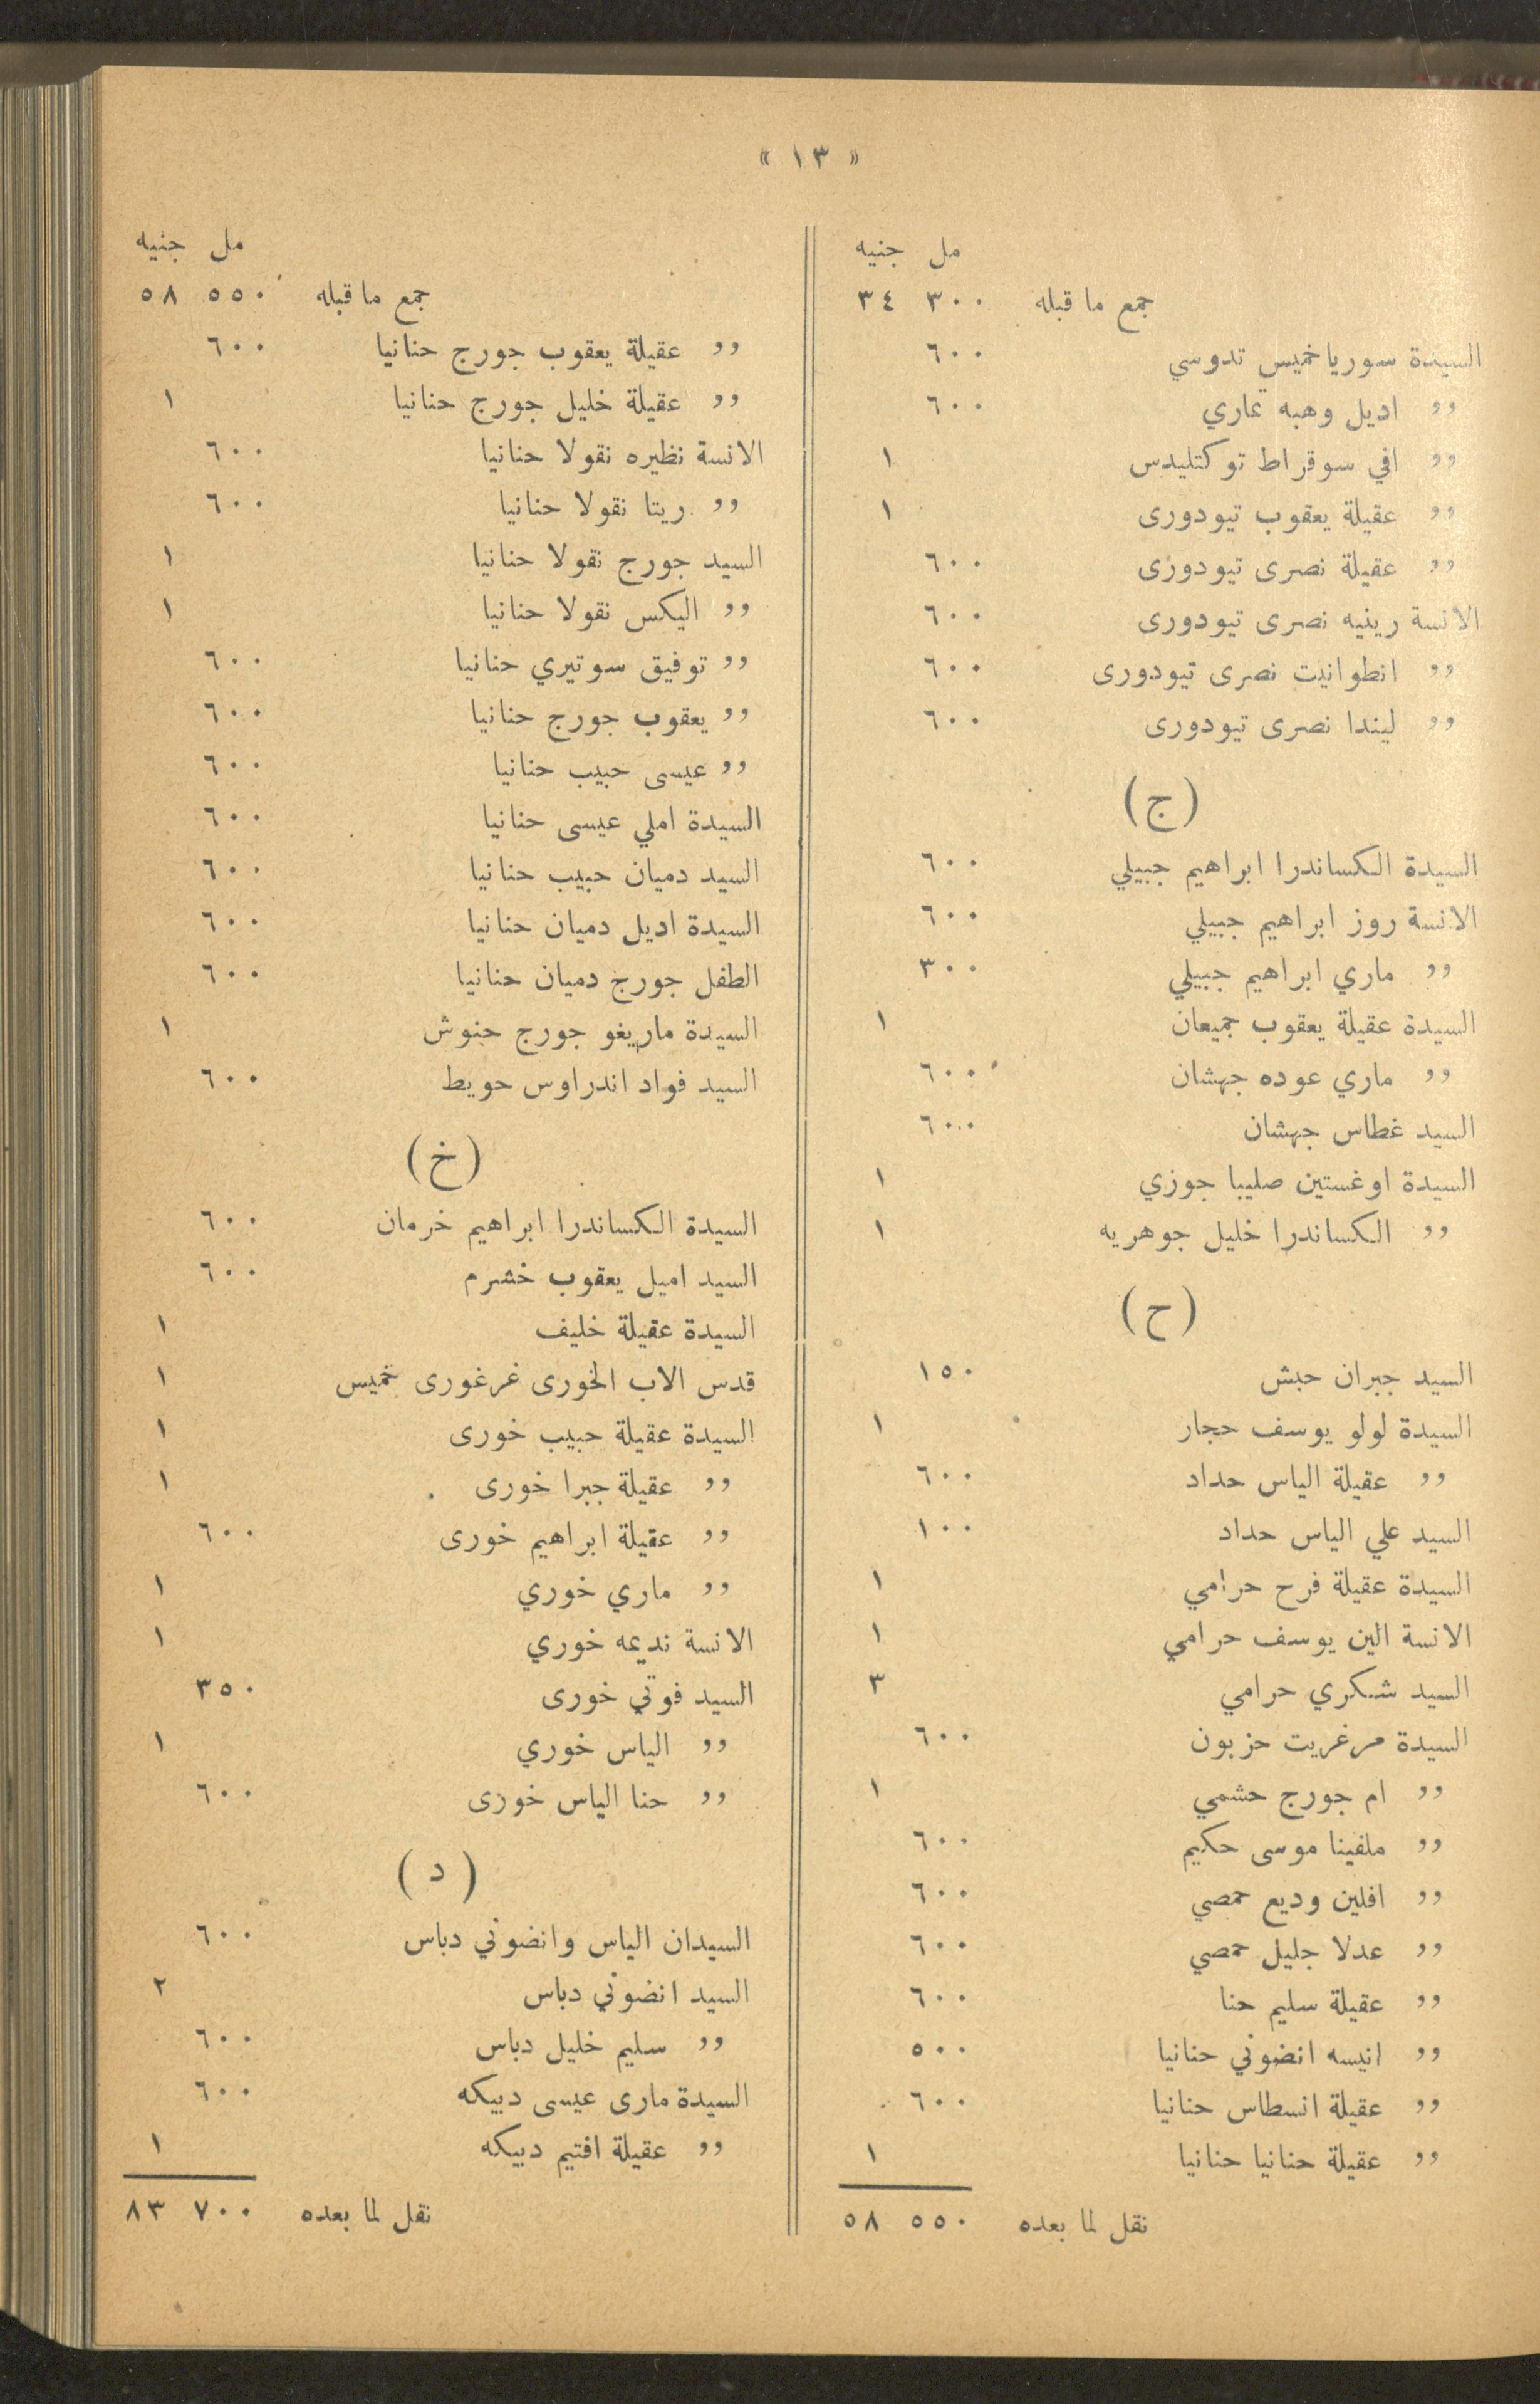 « ١٣ »
مل جنيه
جمع ما قبله ٣٠٠ ٣٤
السيدة سوريا خميس تدوسي ٦٠٠
,, اديل وهبه تماري ٦٠٠
,, افي سوقراط توكتليدس ١
,, عقيلة يعقوب تيودورى ١
,, عقيلة نصرى تيودورى ٦٠٠
الانسة رينيه نصرى تيودورى ٦٠٠
,, انطوانيت نصرى تيودورى ٦٠٠
,, ليندا نصرى تيودورى ٦٠٠
(ج)
السيدة الكساندرا ابراهيم جبيلي ٦٠٠
الانسة روز ابراهيم جبيلي ٦٠٠
,, ماري ابراهيم جبيلي ٣٠٠
السيدة عقيلة يعقوب جميعان ١
,, ماري عوده جهشان ٦٠٠
السيد غطاس جهشان ٦٠٠
السيدة اوغستين صليبا جوزي ١
,, الكساندرا خليل جوهريه ١
(ح)
السيد جبران حبش ١٥٠
السيدة لولو يوسف حجار ١
,, عقيلة الياس حداد ٦٠٠
السيد علي الياس حداد ١٠٠
السيدة عقيلة فرح حرامي ١
الانسة الين يوسف حرامي ١
السيد شكري حرامي ٣
السيدة مرغريت حزبون ٦٠٠
,, ام جورج حشمي ١
,, ملفينا موسى حكيم ٦٠٠
,, افلين وديع حمصي ٦٠٠
,, عدلا جليل حمصي ٦٠٠
,, عقيلة سليم حنا ٦٠٠
,, انيسه انضوني حنانيا ٥٠٠
,, عقيلة انسطاس حنانيا ٦٠٠
,, عقيلة حنانيا حنانيا ١
نقل لما بعده ٥٥٠ ٥٨
مل جنيه
جمع ما قبله ٥٥٠ ٥٨
,, عقيلة يعقوب جورج حنانيا ٦٠٠
,, عقيلة خليل جورج حنانيا ١
الانسة نظيره نقولا حنانيا ٦٠٠
,, ريتا نقولا حنانيا ٦٠٠
السيد جورج نقولا حنانيا ١
,, اليكس نقولا حنانيا ١
,, توفيق سوتيري حنانيا ٦٠٠
,, يعقوب جورج حنانيا ٦٠٠
,, عيسى حبيب حنانيا ٦٠٠
السيدة املي عيسى حنانيا ٦٠٠
السيد دميان حبيب حنانيا ٦٠٠
السيدة اديل دميان حنانيا ٦٠٠
الطفل جورج دميان حنانيا ٦٠٠
السيدة ماريغو جورج حنوش ١
السيد فواد اندراوس حويط ٦٠٠
(خ)
السيدة الكساندرا ابراهيم خرمان ٦٠٠
السيد اميل يعقوب خشرم ٦٠٠
السيدة عقيلة خليف ١
قدس الاب الخورى غرغورى خميس ١
السيدة عقيلة حبيب خورى ١
,, عقيلة جبرا خورى ١
,, عقيلة ابراهيم خورى ٦٠٠
,, ماري خوري ١
الانسة نديمه خوري ١
السيد فوتي خورى ٣٥٠
,, الياس خوري ١
,, حنا الياس خورى ٦٠٠
(د)
السيدان الياس وانضوني دباس ٦٠٠
السيد انضوني دباس ٢
,, سليم خليل دباس ٦٠٠
السيدة مارى عيسى دبيكه ٦٠٠
,, عقيلة افتيم دبيكه ١
نقل لما بعده ٧٠٠ ٨٣